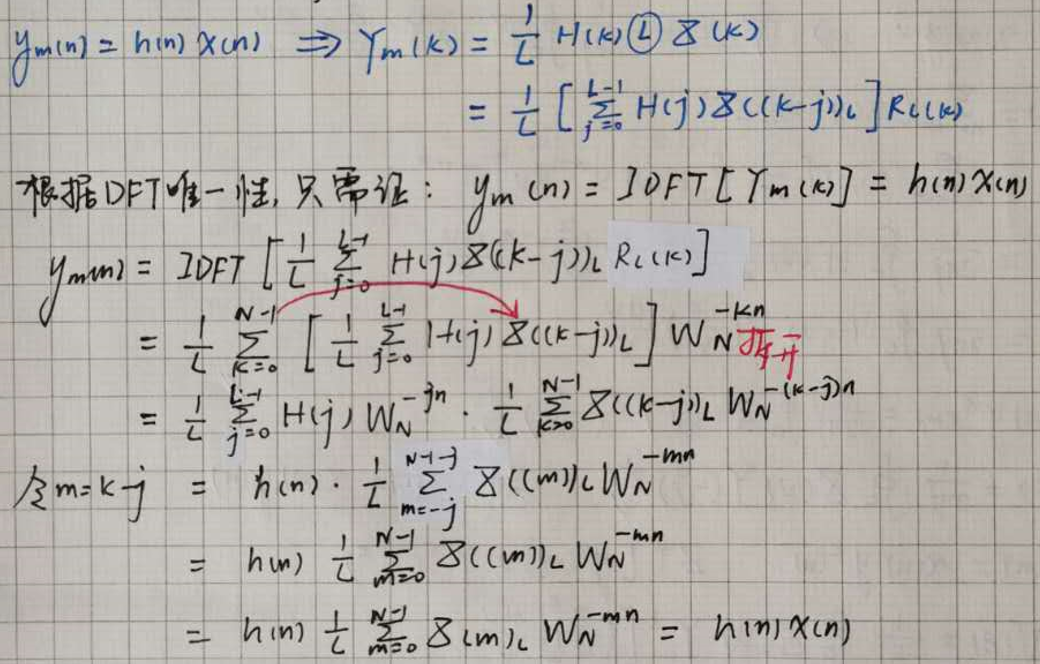 yₘ(n) = h(n) x(n) ⇒ Yₘ(k) = 1/L H(k) Ⓛ X(k)
= 1/L [ ∑_{j=0}^{L-1} H(j) X((k-j))_L ] R_L(k)
根据DFT唯一性, 只需证: yₘ(n) = IDFT[Yₘ(k)] = h(n) x(n)
yₘ(n) = IDFT [ 1/L ∑_{j=0}^{L-1} H(j) X((k-j))_L R_L(k) ]
= 1/L ∑_{k=0}^{N-1} [ 1/L ∑_{j=0}^{L-1} H(j) X((k-j))_L ] W_N^{-kn} 拆开
= 1/L ∑_{j=0}^{L-1} H(j) W_N^{-jn} · 1/L ∑_{k=0}^{N-1} X((k-j))_L W_N^{-(k-j)n}
令m=k-j = h(n) · 1/L ∑_{m=-j}^{N-1-j} X((m))_L W_N^{-mn}
= h(n) 1/L ∑_{m=0}^{N-1} X((m))_L W_N^{-mn}
= h(n) 1/L ∑_{m=0}^{N-1} X(m)_L W_N^{-mn} = h(n) x(n)